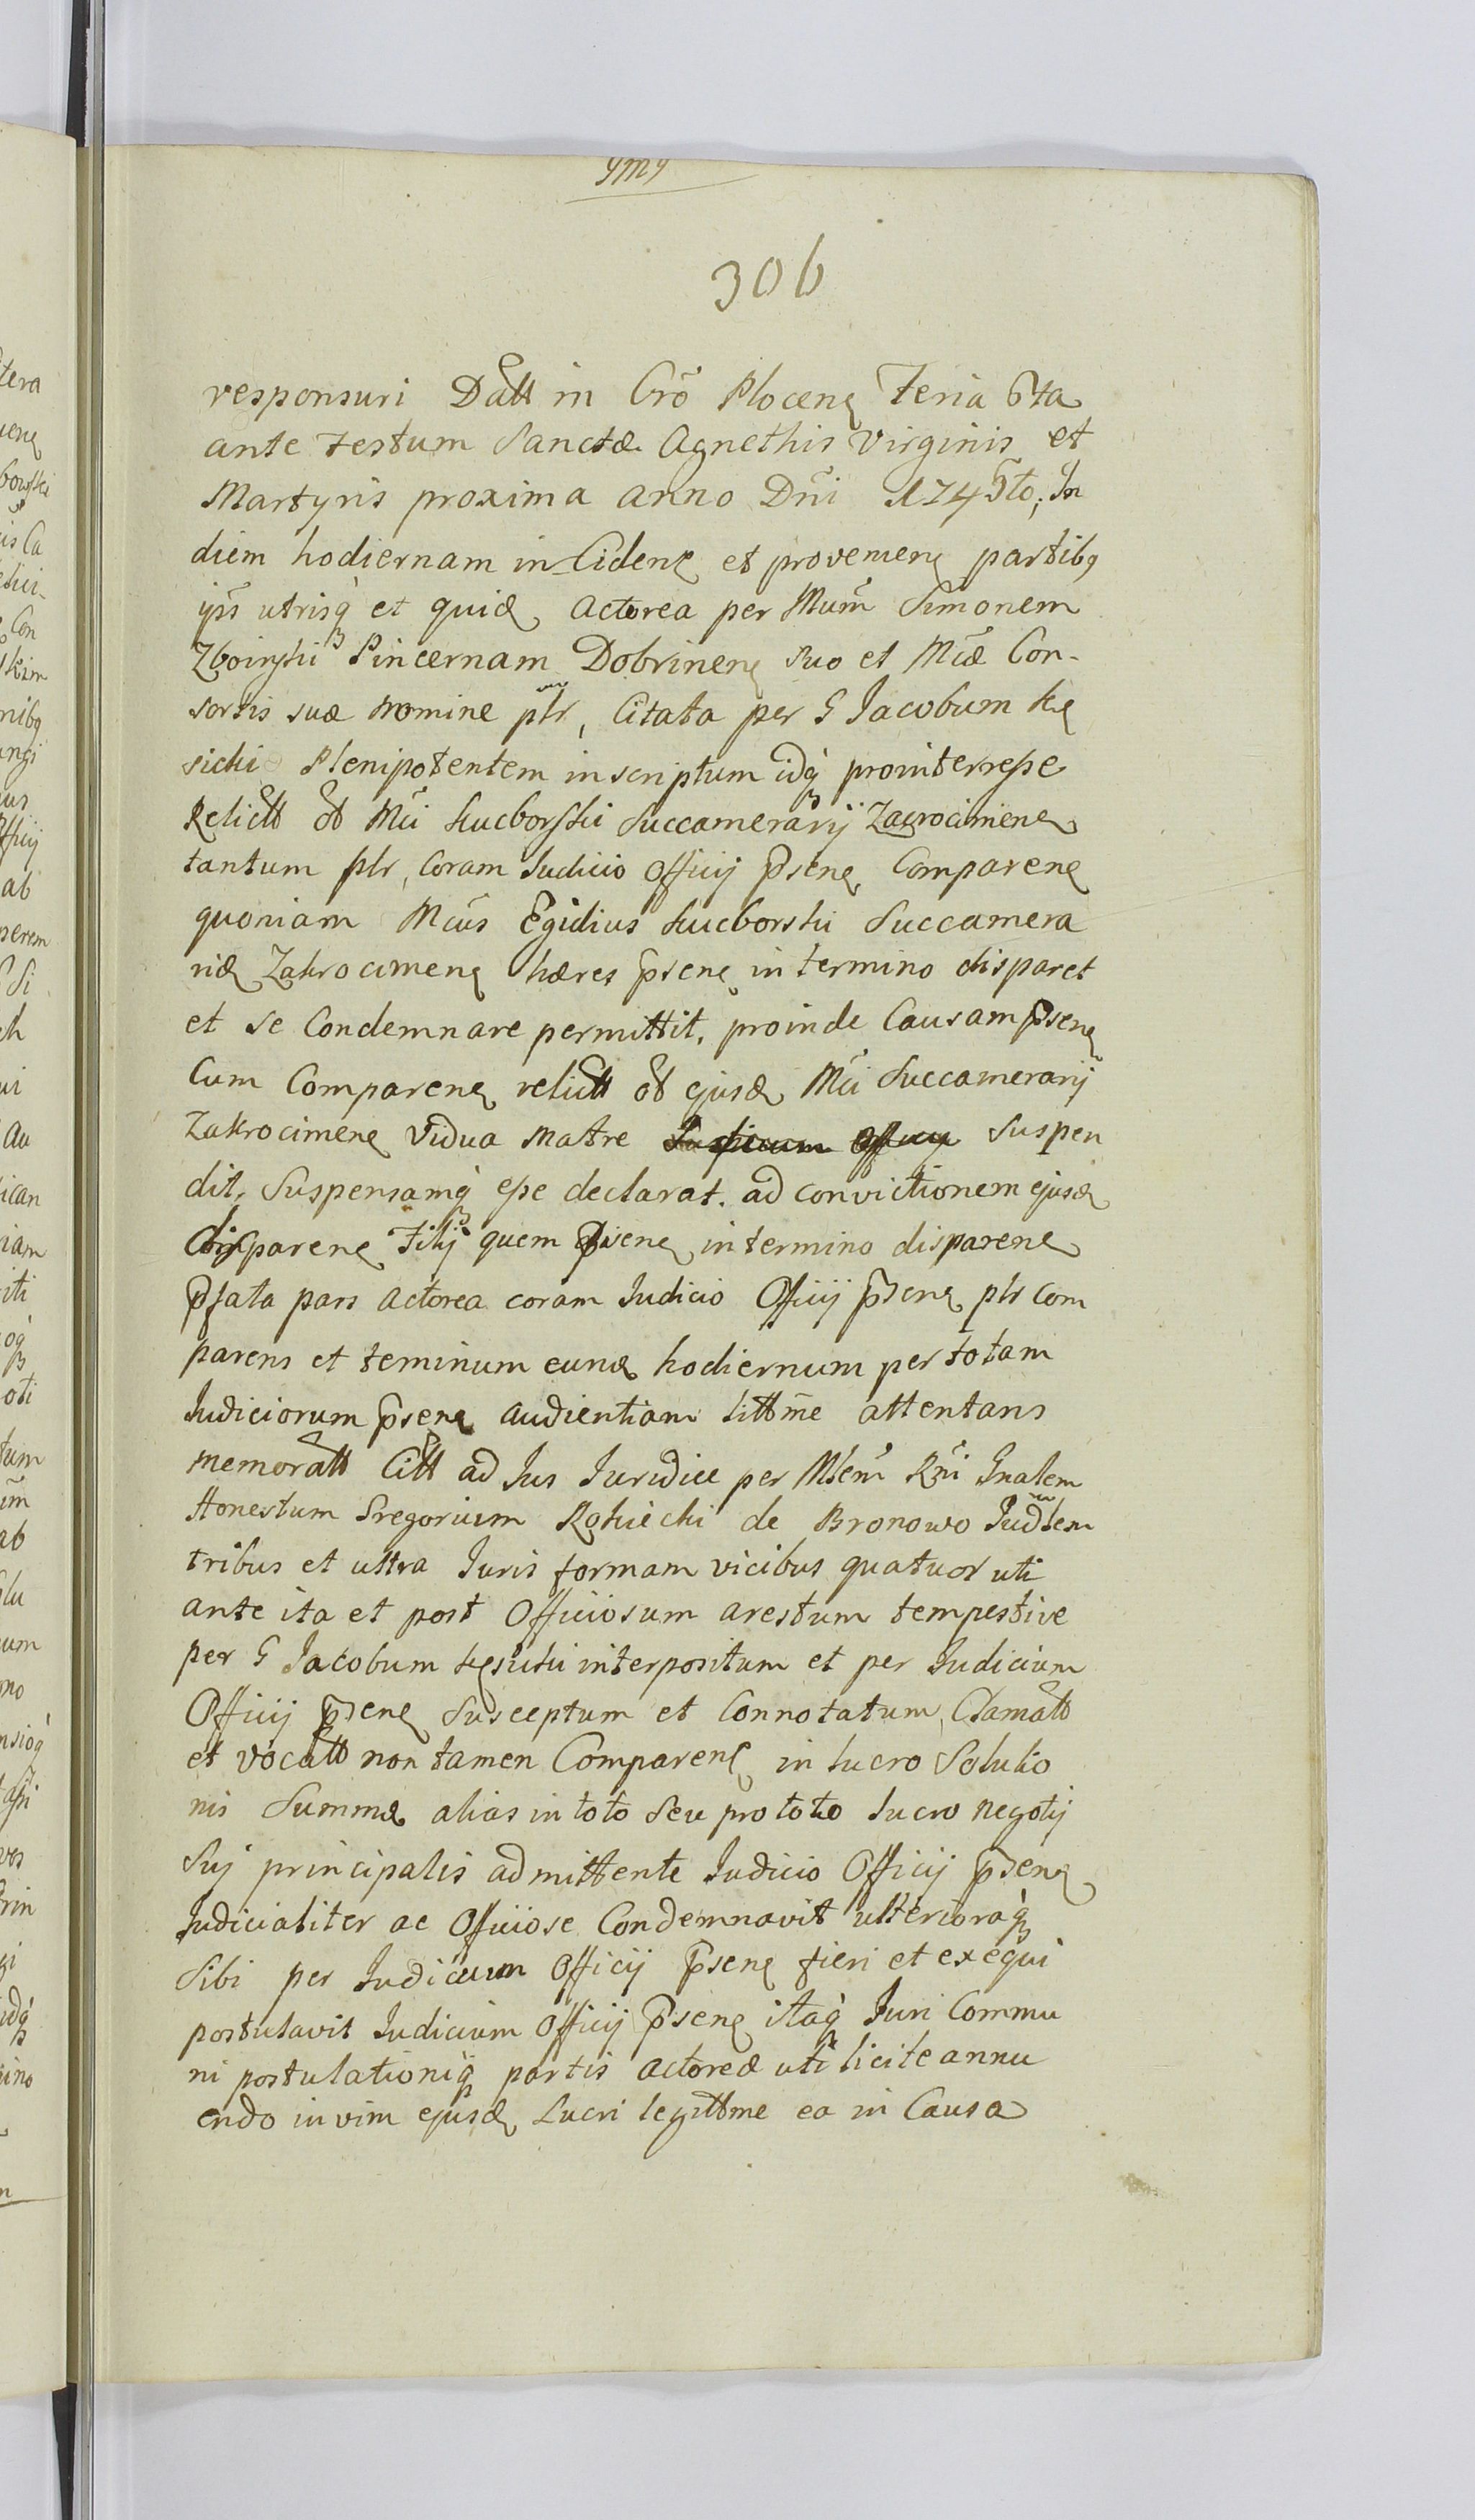 306
responsuri Datt in Crō Plocen Feria 6ta
ante Festum Sanctæ Agnethis Virginis et
Martyris proxima anno Dni 1745to, In
diem hodiernam inciden et provenien partibq
ijs utrisq et quid Actorea per Mum Simonem
Zboinski Pincernam Dobrinen suo et Mcæ Con-
sortis suæ nomine plr, Citata per G Jacobum Kę
sicki Plenipotentem in scriptum idq prointeresse
Relictt ot Mci Lucborski Succamerarij Zacrocimen
tantum plr, Coram Judicio Officij Psen Comparen
quoniam Mcus Egidius Lucborski Succamera
rid Zakrocimen hæres psen in termino disparet
et se Condemnare permittit, proinde Causam Psen
Cum Comparen relictt ot ejusd Mci Succamerarij
Zakrocimen Vidua Matre Judicium Officij Suspen
dit, Suspensamq esse declarat. ad convictionem ejusd
disparen Filij quem Psen in termino disparen
Pfata pars Actorea coram Judicio Officij Psen plr Com
parens et teminum eund hodiernum per totam
Judiciorum Psen audientiam littme attentans
memoratt Citt ad Jus Juridice per Mlem Rni Gnalem
Honestum Gregorium Rokicki de Bronowo Judlem
tribus et ultra Juris formam vicibus quatuor uti
ante ita et post Officiosum arestum tempestive
per G Jacobum Kęsicki interpositum et per Judicium
Officij Psen Susceptum et Connotatum, Clamatt
et vocatt non tamen Comparen in lucro Solutio
nis Summæ alias in toto seu pro toto lucro negotij
Sui principalis admittente Judicio Officij psen
Judicialiter ac Officiose Condemnavit ulterioraq
Sibi per Judicium Officij Psen fieri et exequi
postulavit Judicium Officij Psen itaq Juri Commu
ni postulationiq partis actoreæ uti licite annu
endo in vim ejusd Lucri legittme ea in Causa